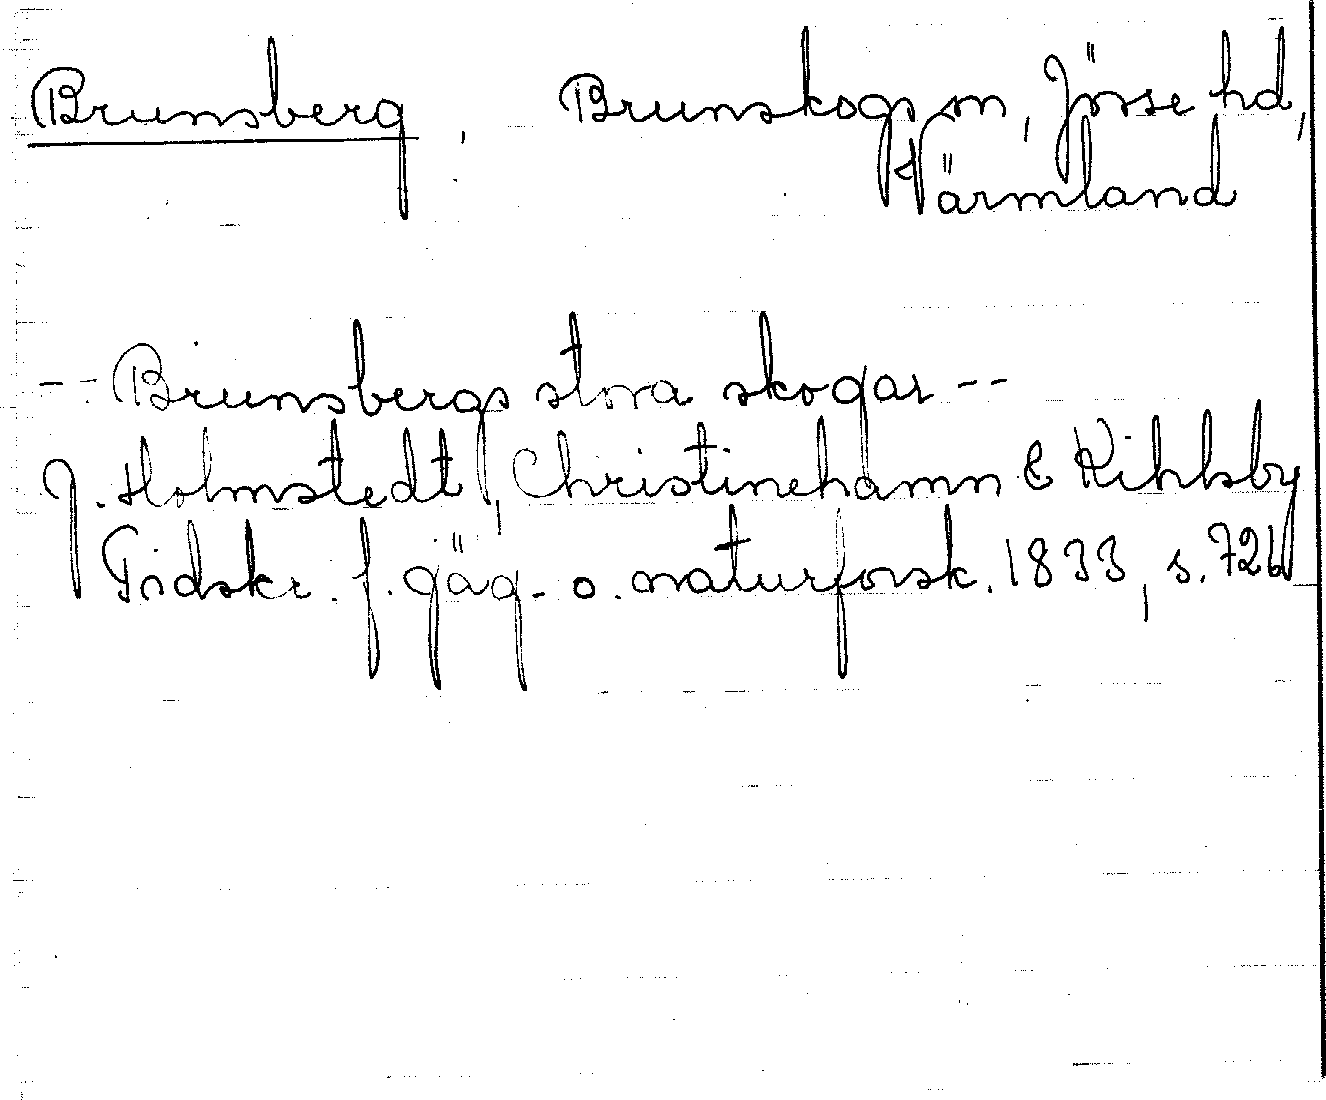 Brunsberg, Brunskogs sn, Jösse hd,
Värmland
-- Brunsbergs stora skogar --
J. Holmstedt, Christinehamn & Rihksby
Tidskr. f. jäg. o. naturforsk. 1833, s. 726